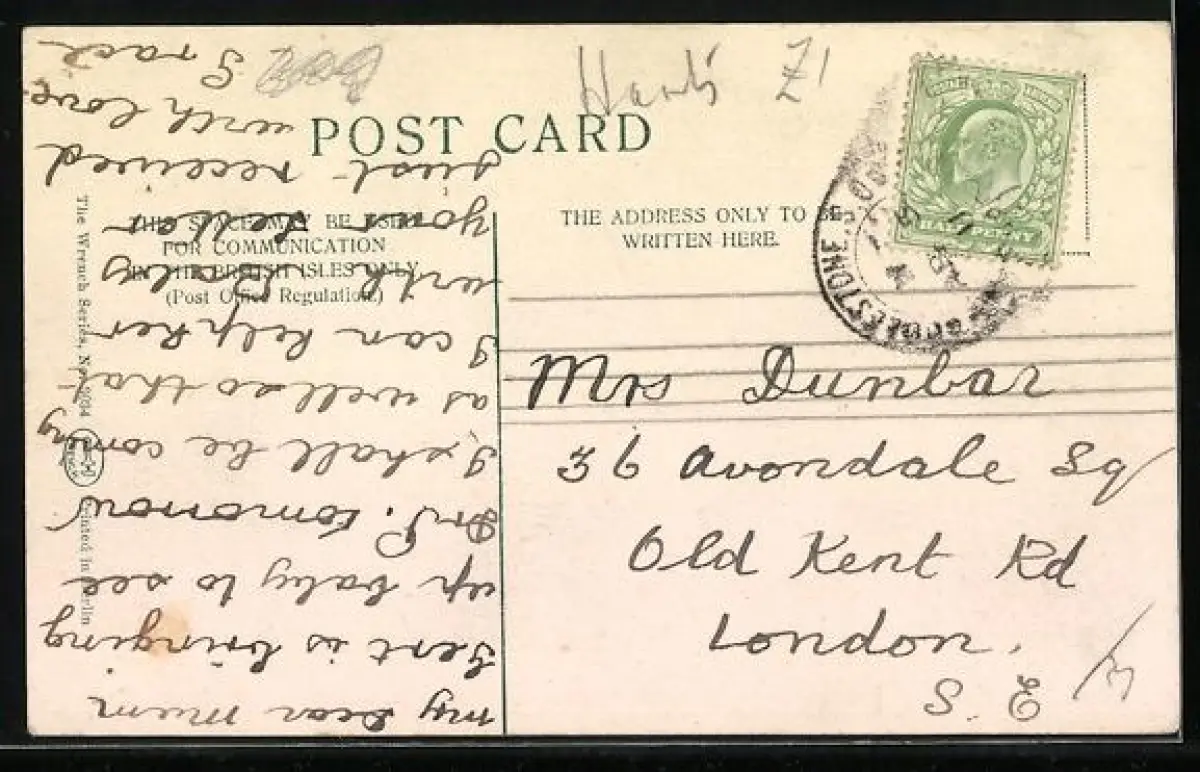 Herts Z1
POST CARD
THIS SPACE MAY BE USED
FOR COMMUNICATION
IN THE BRITISH ISLES ONLY
(Post Office Regulation.)
THE ADDRESS ONLY TO BE
WRITTEN HERE.
HALF PENNY
Mrs Dunbar
36 Avondale Sq
Old Kent Rd
London.
S. E
My Dear Mum
Gert is bringing
up baby to see
Dr P. tomorrow
I shall be coming
as well so that
I can help her
with Baby
your letter
just received
with love
The Wrench Series, No.
Printed in Berlin